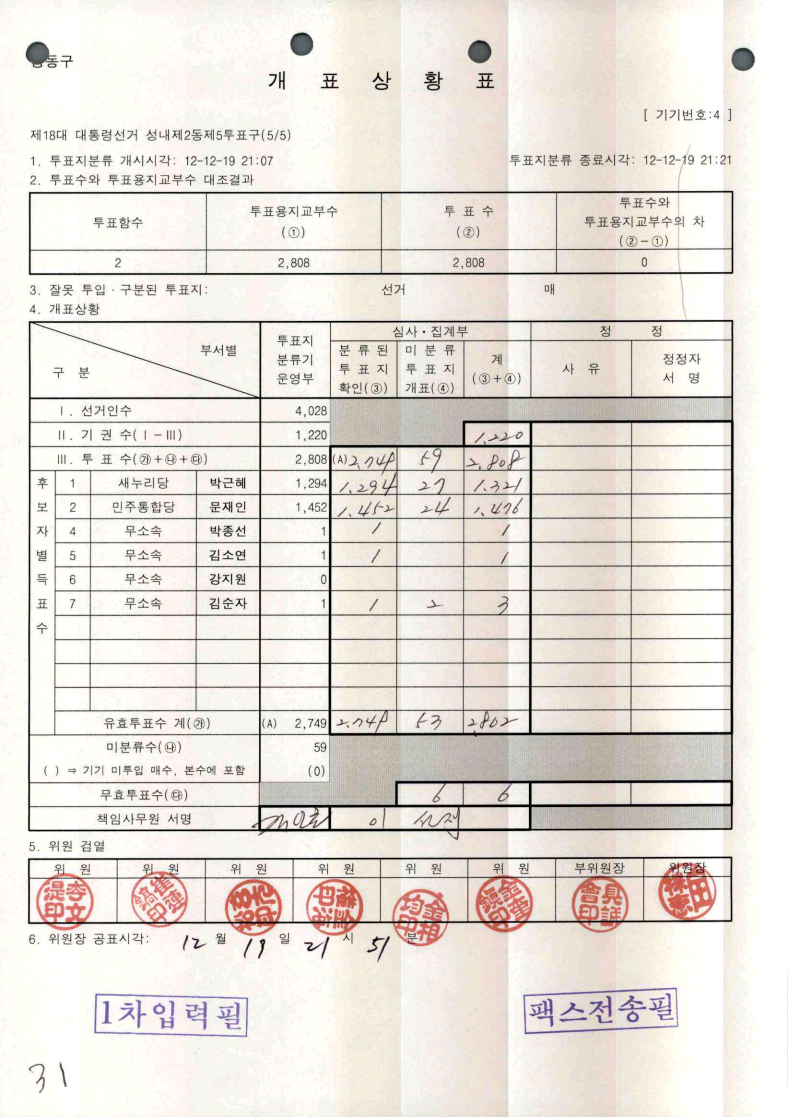 동구
개 표 상 황 표
[ 기기번호:4 ]
제18대 대통령선거 성내제2동제5투표구(5/5)
1. 투표지분류 개시시각: 12-12-19 21:07 투표지분류 종료시각: 12-12-19 21:21
2. 투표수와 투표용지교부수 대조결과
투표함수 투표용지교부수 (①) 투 표 수 (②) 투표수와 투표용지교부수의 차 (②-①)
2 2,808 2,808 0
3. 잘못 투입·구분된 투표지: 선거 매
4. 개표상황
구 분 부서별 투표지 분류기 운영부 심사·집계부 정 정
분 류 된 투 표 지 확인(③) 미 분 류 투 표 지 개표(④) 계 (③+④) 사 유 정정자 서 명
Ⅰ. 선거인수 4,028
Ⅱ. 기 권 수(Ⅰ-Ⅲ) 1,220 1,220
Ⅲ. 투 표 수(㉮+㉯+㉰) 2,808 (A) 2,749 59 2,808
후보자별득표수
1 새누리당 박근혜 1,294 1,294 27 1,321
2 민주통합당 문재인 1,452 1,452 24 1,476
4 무소속 박종선 1 1 1
5 무소속 김소연 1 1 1
6 무소속 강지원 0
7 무소속 김순자 1 1 2 3
유효투표수 계(㉮) (A) 2,749 2,749 53 2,802
미분류수(㉯) 59
( ) ⇒ 기기 미투입 매수, 본수에 포함 (0)
무효투표수(㉰) 6 6
책임사무원 서명 이
5. 위원 검열
위 원 위 원 위 원 위 원 위 원 위 원 부위원장 위원장
6. 위원장 공표시각: 12 월 19 일 21 시 51 분
1차입력필
팩스전송필
31